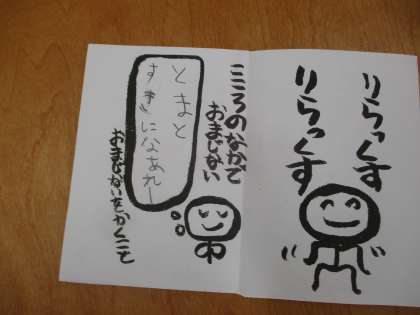 りらっくす
りらっくす
こころのなかで
おまじない
とまと
すきになあれー
おまじないをかくことも